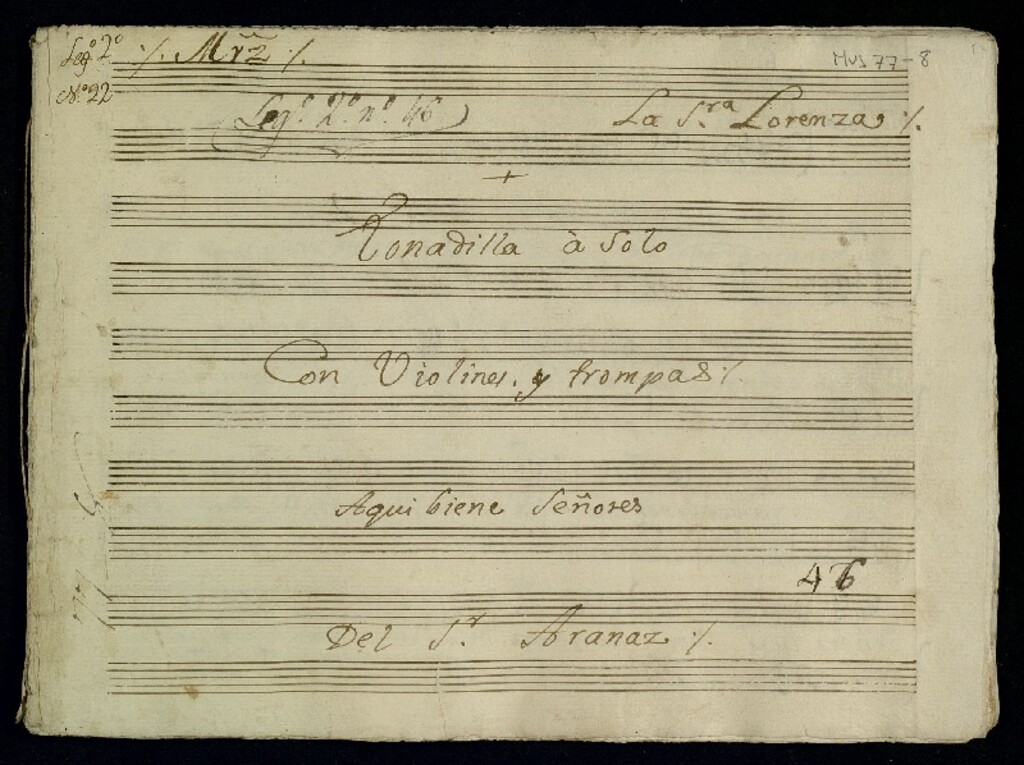 Leg.º 2º ·/. Mrz̃ ·/. MUS 77-8
Nº 22
Leg.º 2º n.º 46 La S.ra Lorenza ·/.
+
Tonadilla à Solo
Con Violines. y trompas ·/.
Aqui biene Señores
46
Del S.r Aranaz ·/.